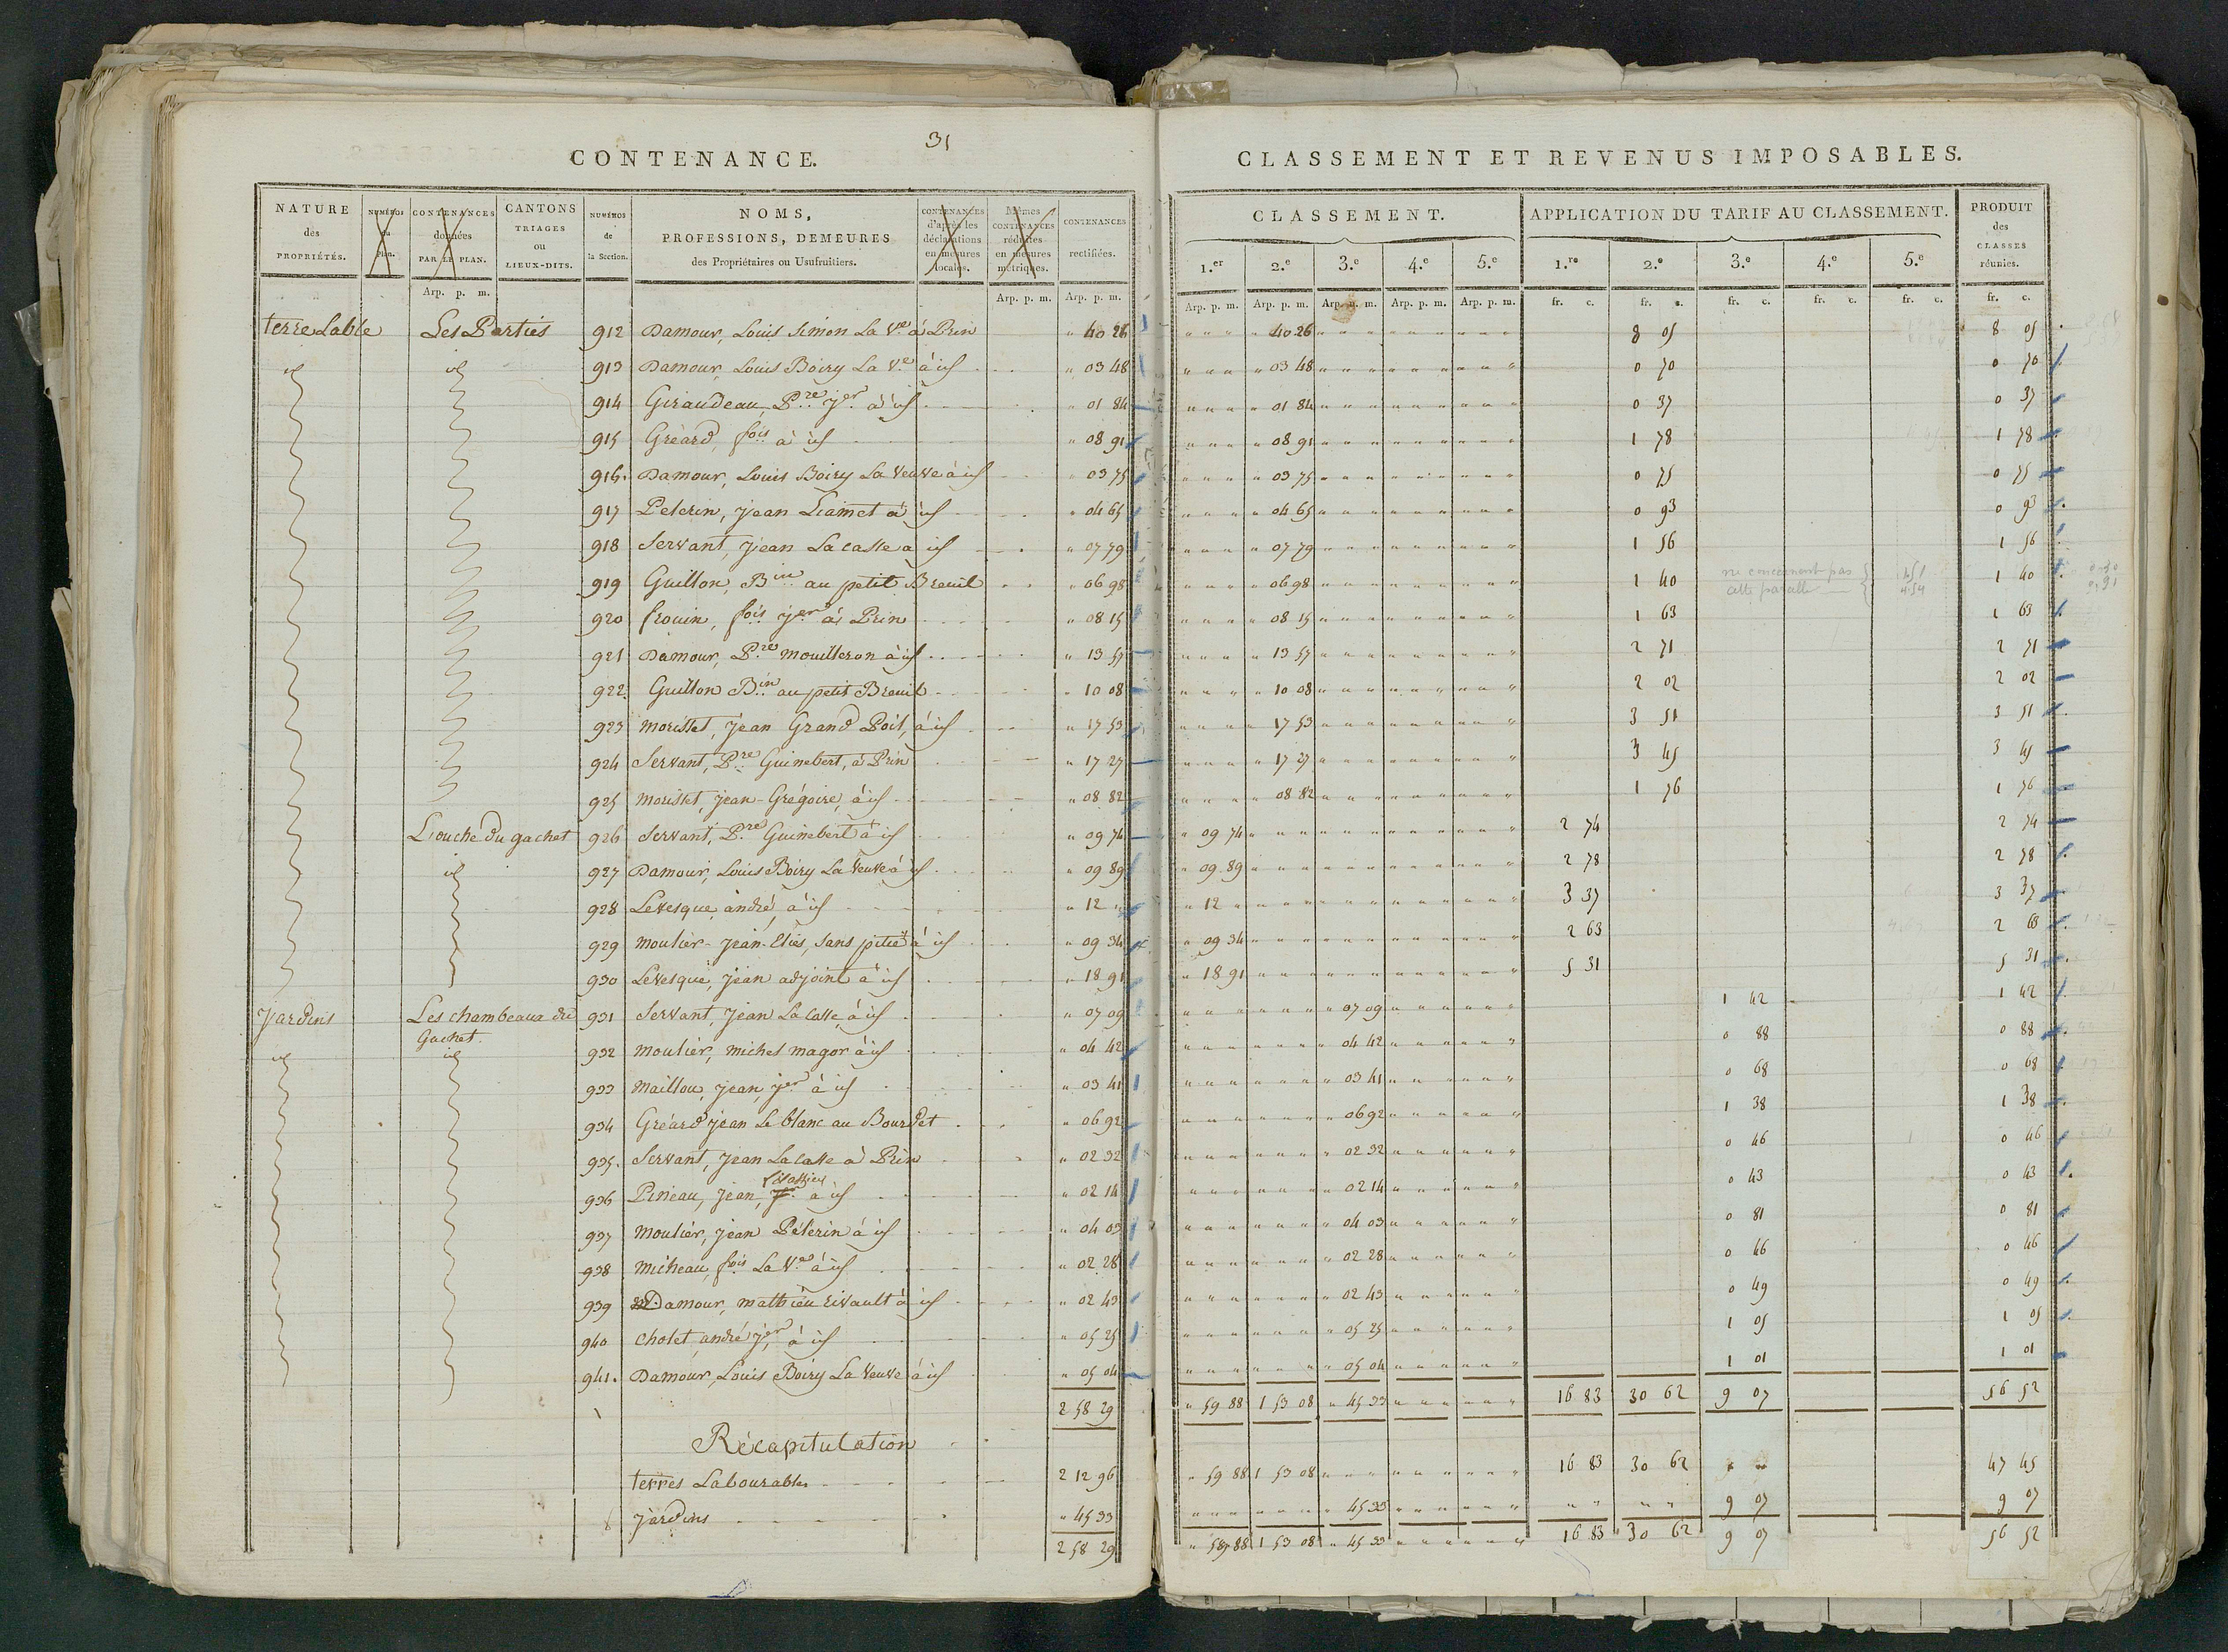 31
CONTENANCE.
NATURE des PROPRIÉTÉS. | NUMÉROS du Plan. | CONTENANCES données PAR LE PLAN. | CANTONS TRIAGES ou LIEUX-DITS. | NUMÉROS de la Section. | NOMS, PROFESSIONS, DEMEURES des Propriétaires ou Usufruitiers. | CONTENANCES d'après les déclarations en mesures locales. | Mêmes CONTENANCES réduites en mesures métriques. | CONTENANCES rectifiées.
Arp. p. m. | Arp. p. m. | Arp. p. m.
terre Lable Les Parties 912 Damour, Louis Simon La Ve à Prin " 40 26
id id 913 Damour, Louis Boiry La Ve à id " 03 48
914 Giraudeau, Pre jer à id " 01 84
915 Gréard, fois à id " 08 91
916. Damour, Louis Boiry La Veuve à id " 03 75
917 Pelerin, jean Liamet à id " 04 65
918 Servant, jean Lacasse a id " 07 79
919 Guillon, Bin au petit Breuil " 06 98
920 frouin, fois jer à Prin " 08 15
921 Damour, Pre mouilleron à id " 13 57
922. Guillon Bin au petit Breuil " 10 08
923 morisset, jean Grand Poil, à id " 17 53
924 Servant, Pre Guinebert, à Prin " 17 27
925 morisset, jean-Grégoire, à id " 08 82
Louche du gachet 926 Servant, Pre Guinebert à id " 09 74
id 927 Damour, Louis Boiry La Veuve à id " 09 89
928 Levesque, andré, à id " 12 "
929 moulier-jean-Elies, Sans pitié à id " 09 34
930 Levesque, jean adjoint à id " 18 91
Jardins Les chambeaux du Gachet. 931 Servant, jean Lacasse, à id " 07 09
id id 932 moulier, michel magor à id " 04 42
933 maillou, jean, jer à id " 03 41
934 Gréard jean Le blanc au Bourdet " 06 92
935. Servant, jean Lacasse à Prin " 02 32
936 Pineau, jean, à id " 02 14
937 moulier, jean Pélerin à id " 04 03
938 micheau, fois La Ve à id " 02 28
939 Damour, mathieu rivault à id " 02 43
940 cholet, andré jer, à id " 05 25
941. Damour, Louis Boiry La Veuve à id " 05 04
2 58 29
Récapitulation
terres Labourables 2 12 96
jardins " 45 33
2 58 29
CLASSEMENT ET REVENUS IMPOSABLES.
CLASSEMENT. | APPLICATION DU TARIF AU CLASSEMENT. | PRODUIT des CLASSES réunies.
1.er | 2.e | 3.e | 4.e | 5.e | 1.re | 2.e | 3.e | 4.e | 5.e
Arp. p. m. | Arp. p. m. | Arp. p. m. | Arp. p. m. | Arp. p. m. | fr. c. | fr. c. | fr. c. | fr. c. | fr. c. | fr. c.
" 40 26 8 05 8 05
" 03 48 0 70 0 70
" 01 84 0 37 0 37
" 08 91 1 78 1 78
" 03 75 0 75 0 75
" 04 65 0 93 0 93
" 07 79 1 56 1 56
" 06 98 1 40 ne concernent pas cette parcelle 4.54 1 40
" 08 15 1 63 1 63
" 13 57 2 71 2 71
" 10 08 2 02 2 02
" 17 53 3 51 3 51
" 17 27 3 45 3 45
" 08 82 1 76 1 76
" 09 74 2 74 2 74
" 09 89 2 78 2 78
" 12 " 3 37 3 37
" 09 34 2 63 2 63
" 18 91 5 31 5 31
" 07 09 1 42 1 42
" 04 42 0 88 0 88
" 03 41 0 68 0 68
" 06 92 1 38 1 38
" 02 32 0 46 0 46
" 02 14 0 43 0 43
" 04 03 0 81 0 81
" 02 28 0 46 0 46
" 02 43 0 49 0 49
" 05 25 1 05 1 05
" 05 04 1 01 1 01
" 59 88 1 53 08 " 45 33 16 83 30 62 9 07 56 52
" 59 88 1 53 08 16 83 30 62 " " 47 45
" 45 33 " " " " 9 07 9 07
" 59 88 1 53 08 " 45 33 16 83 30 62 9 07 56 52